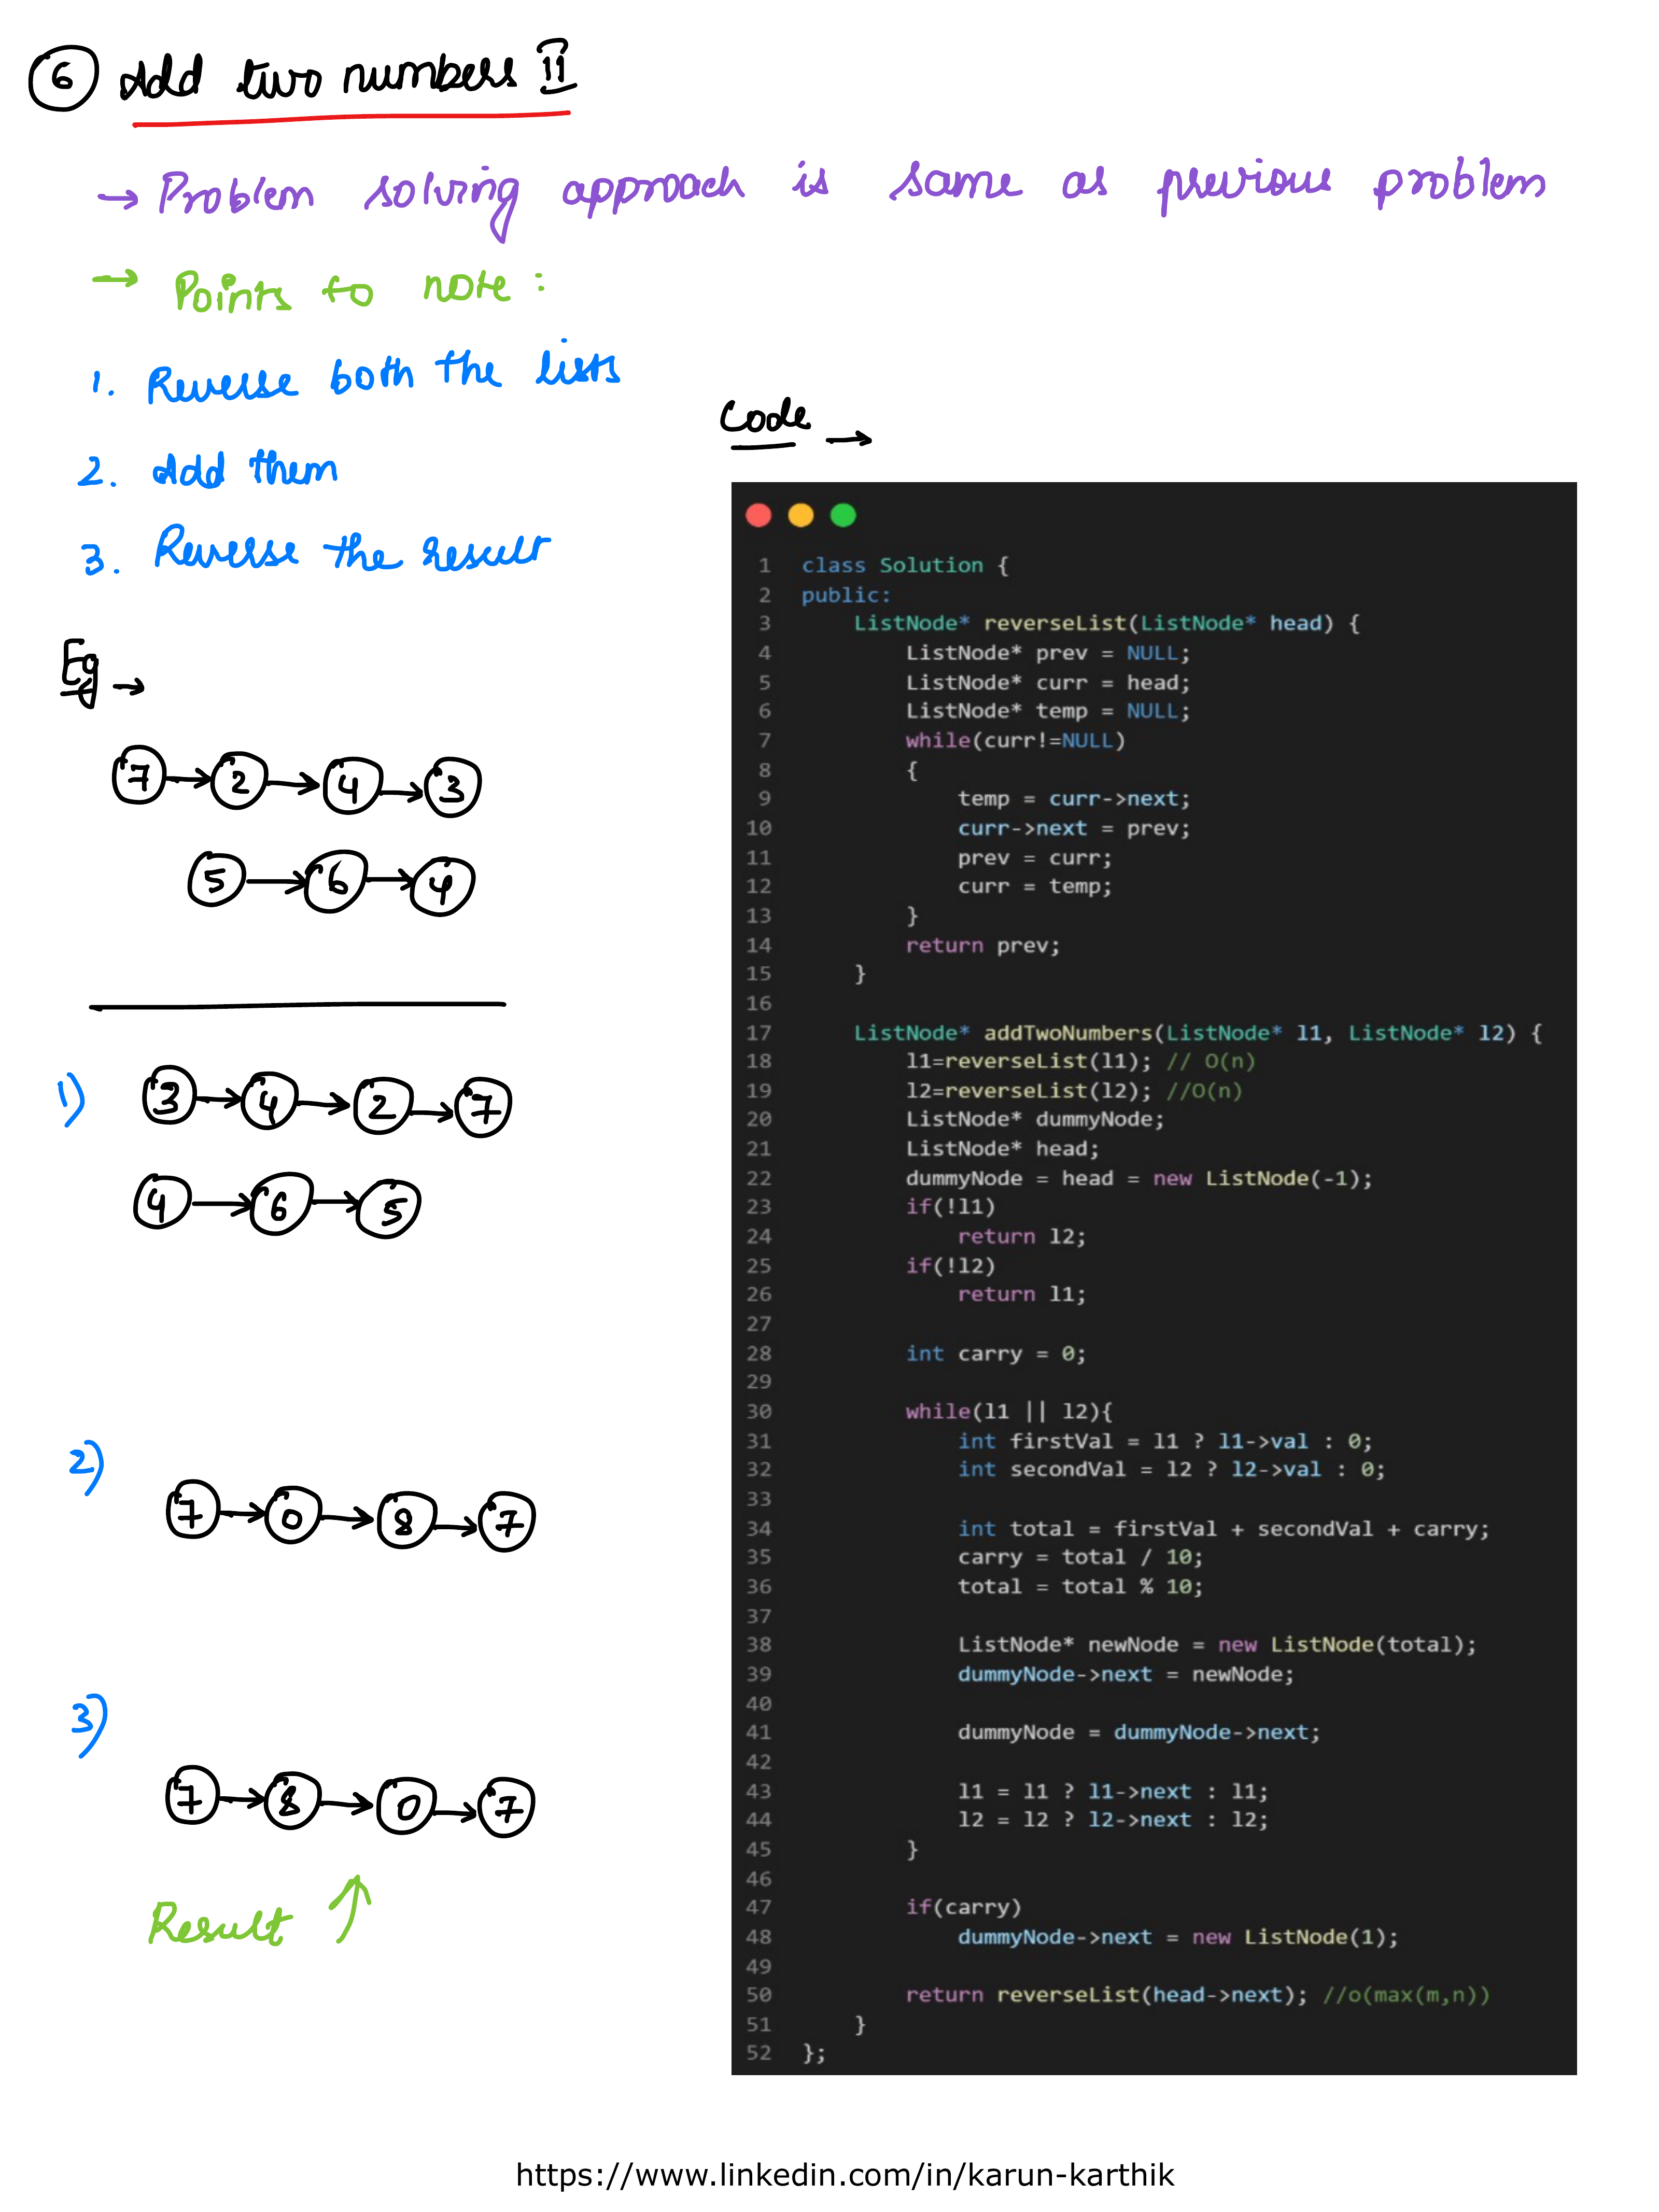 6 Add two numbers II
→ Problem solving approach is same as previous problem
→ Points to note :
1. Reverse both the lists
2. Add them
3. Reverse the result
Eg →
7 → 2 → 4 → 3
5 → 6 → 4
1) 3 → 4 → 2 → 7
4 → 6 → 5
2) 7 → 0 → 8 → 7
3) 7 → 8 → 0 → 7
Result ↑
Code →
1 class Solution {
2 public:
3 ListNode* reverseList(ListNode* head) {
4 ListNode* prev = NULL;
5 ListNode* curr = head;
6 ListNode* temp = NULL;
7 while(curr!=NULL)
8 {
9 temp = curr->next;
10 curr->next = prev;
11 prev = curr;
12 curr = temp;
13 }
14 return prev;
15 }
16
17 ListNode* addTwoNumbers(ListNode* l1, ListNode* l2) {
18 l1=reverseList(l1); // O(n)
19 l2=reverseList(l2); //O(n)
20 ListNode* dummyNode;
21 ListNode* head;
22 dummyNode = head = new ListNode(-1);
23 if(!l1)
24 return l2;
25 if(!l2)
26 return l1;
27
28 int carry = 0;
29
30 while(l1 || l2){
31 int firstVal = l1 ? l1->val : 0;
32 int secondVal = l2 ? l2->val : 0;
33
34 int total = firstVal + secondVal + carry;
35 carry = total / 10;
36 total = total % 10;
37
38 ListNode* newNode = new ListNode(total);
39 dummyNode->next = newNode;
40
41 dummyNode = dummyNode->next;
42
43 l1 = l1 ? l1->next : l1;
44 l2 = l2 ? l2->next : l2;
45 }
46
47 if(carry)
48 dummyNode->next = new ListNode(1);
49
50 return reverseList(head->next); //o(max(m,n))
51 }
52 };
https://www.linkedin.com/in/karun-karthik